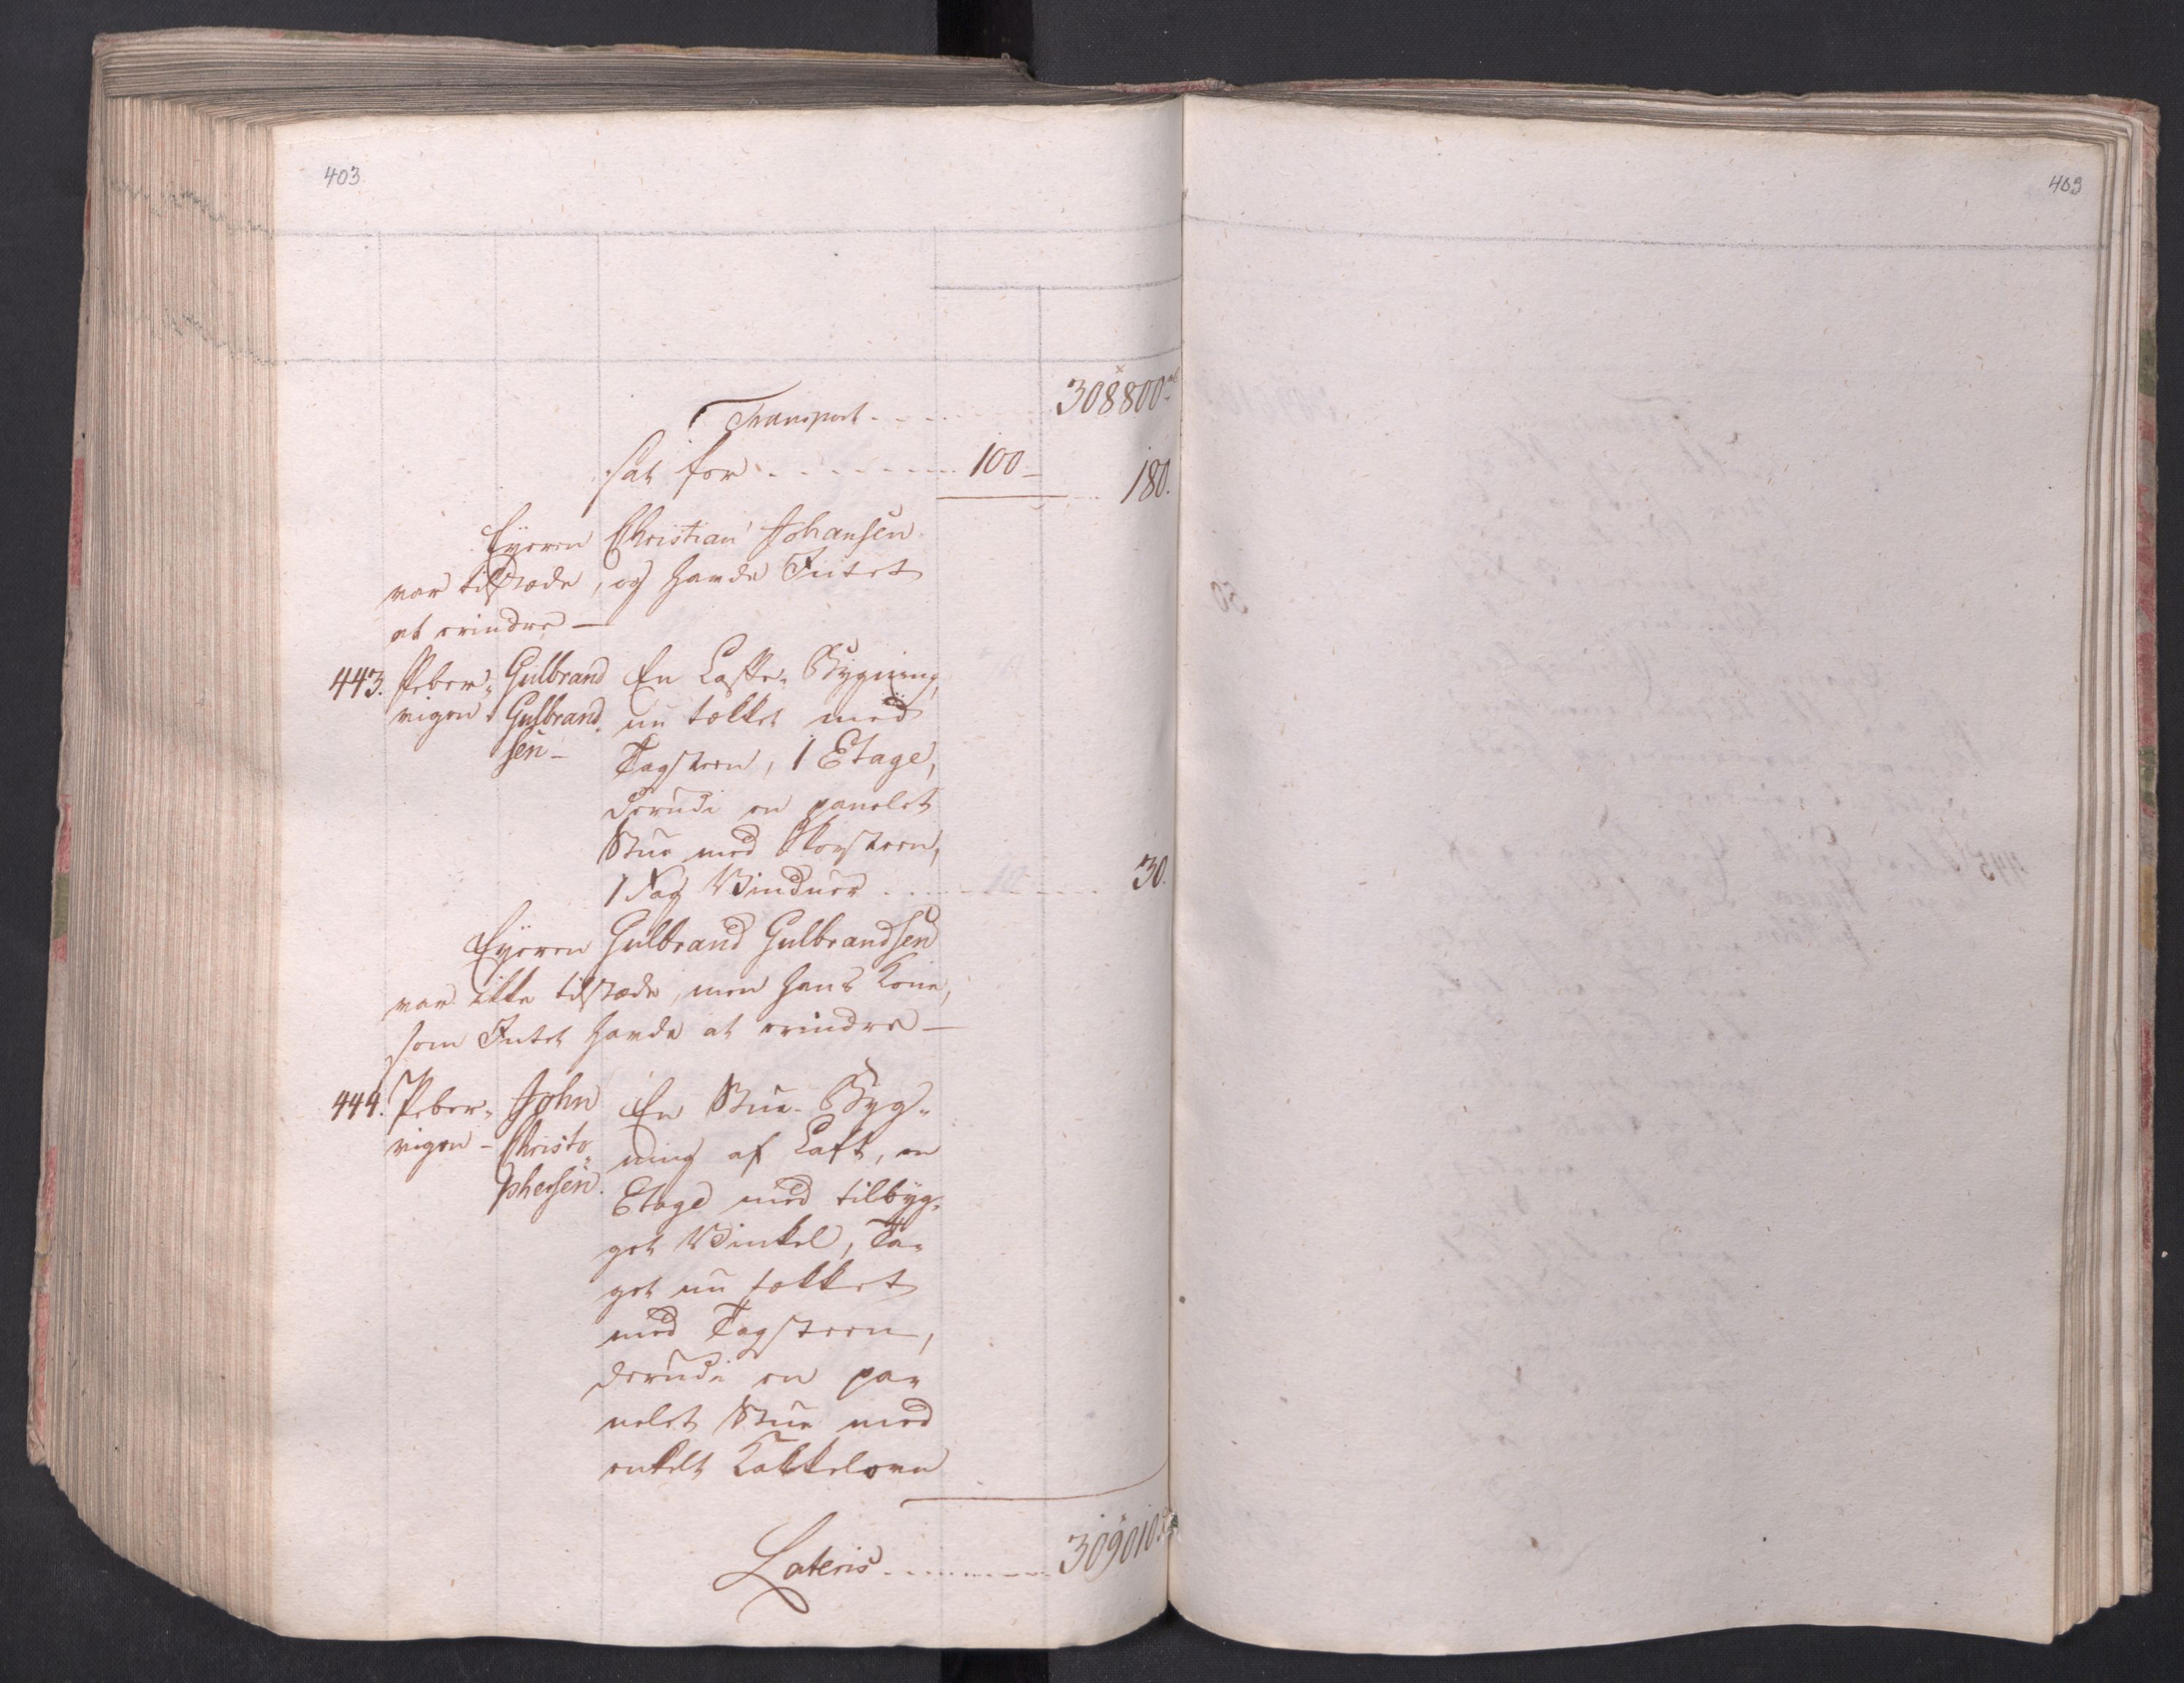 403
409
Transport 308800
sat for 100 180.
Eyeren Christian Johansen
var tilstæde, og havde Intet
at erindre —
443. Peber- Gulbrand En Lafte-Bygning,
vigen Gulbrand nu tækket med
sen - Tagsteen, 1 Etage,
derudi en panelet
Stue med Skorsteen,
1 Fag Vinduer 30.
Eyeren Gulbrand Gulbrandsen
var ikke tilstæde, men hans Kone,
som Intet havde at erindre —
444. Peber- John En Stue-Byg-
vigen - Christo- ning af Laft, en
phersen. Etage med tilbyg-
get Vinkel, Ta-
get nu tækket
med Tagsteen,
derudi en pa-
nelet Stue med
enkelt Kakkelovn
Lateris 309010